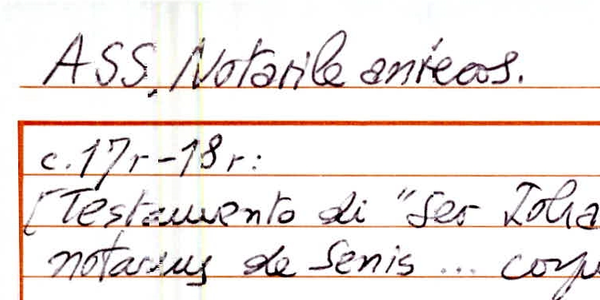 ASS, Notarile antecos.
c. 17r-18r:
[Testamento di "Ser Joha
notarius de Senis ... corp